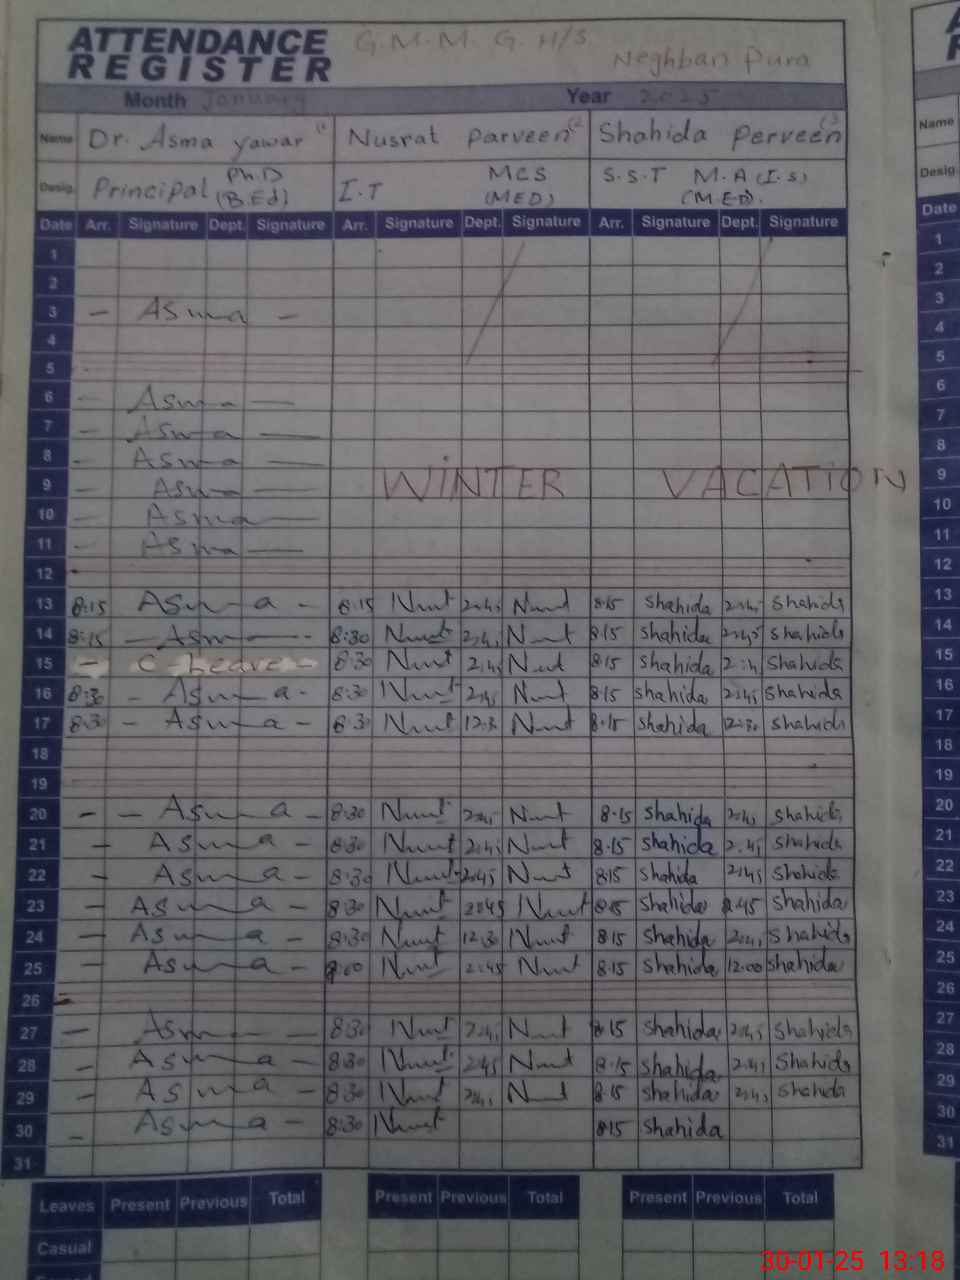 ATTENDANCE REGISTER G.M.M. G. H/S Neghban Pura
Month January Year 2025
Name Dr. Asma Yawar (1 Nusrat Parveen (2 Shahida Perveen (3
Desig. Principal Ph.D (B.Ed) I.T MCS (MED) S.S.T M.A (I.S) (M.ED).
Date Arr. Signature Dept. Signature Arr. Signature Dept. Signature Arr. Signature Dept. Signature
1
2
3 – Asma –
4
5
6 – Asma —
7 – Asma —
8 – Asma —
9 – Asma — WINTER VACATION
10 – Asma —
11 – Asma —
12
13 8:15 Asma – 8:15 Nusrat 2:45 Nusrat 8:15 Shahida 2:45 Shahida
14 8:15 – Asma – 8:30 Nusrat 2:45 Nusrat 8:15 Shahida 2:45 Shahida
15 – C-Leave – 8:30 Nusrat 2:45 Nusrat 8:15 Shahida 2:45 Shahida
16 8:30 – Asma – 8:30 Nusrat 2:45 Nusrat 8:15 Shahida 2:45 Shahida
17 8:30 – Asma – 8:30 Nusrat 12:30 Nusrat 8:15 Shahida 12:30 Shahida
18
19
20 – – Asma – 8:30 Nusrat 2:45 Nusrat 8:15 Shahida 2:45 Shahida
21 – Asma – 8:30 Nusrat 2:45 Nusrat 8:15 Shahida 2:45 Shahida
22 – Asma – 8:30 Nusrat 2:45 Nusrat 8:15 Shahida 2:45 Shahida
23 – Asma – 8:30 Nusrat 2:45 Nusrat 8:15 Shahida 2:45 Shahida
24 – Asma – 8:30 Nusrat 12:30 Nusrat 8:15 Shahida Shahida
25 – Asma – Nusrat 2:45 Nusrat 8:15 Shahida 12:00 Shahida
26
27 – Asma – 8:30 Nusrat 2:45 Nusrat 8:15 Shahida 2:45 Shahida
28 – Asma – 8:30 Nusrat 2:45 Nusrat 8:15 Shahida 2:45 Shahida
29 – Asma – 8:30 Nusrat 2:45 Nusrat 8:15 Shahida 2:45 Shahida
30 – Asma – 8:30 Nusrat 8:15 Shahida
31
Leaves Present Previous Total Present Previous Total Present Previous Total
Casual
30-01-25 13:18
Name
Desig.
Date
1
2
3
4
5
6
7
8
9
10
11
12
13
14
15
16
17
18
19
20
21
22
23
24
25
26
27
28
29
30
31